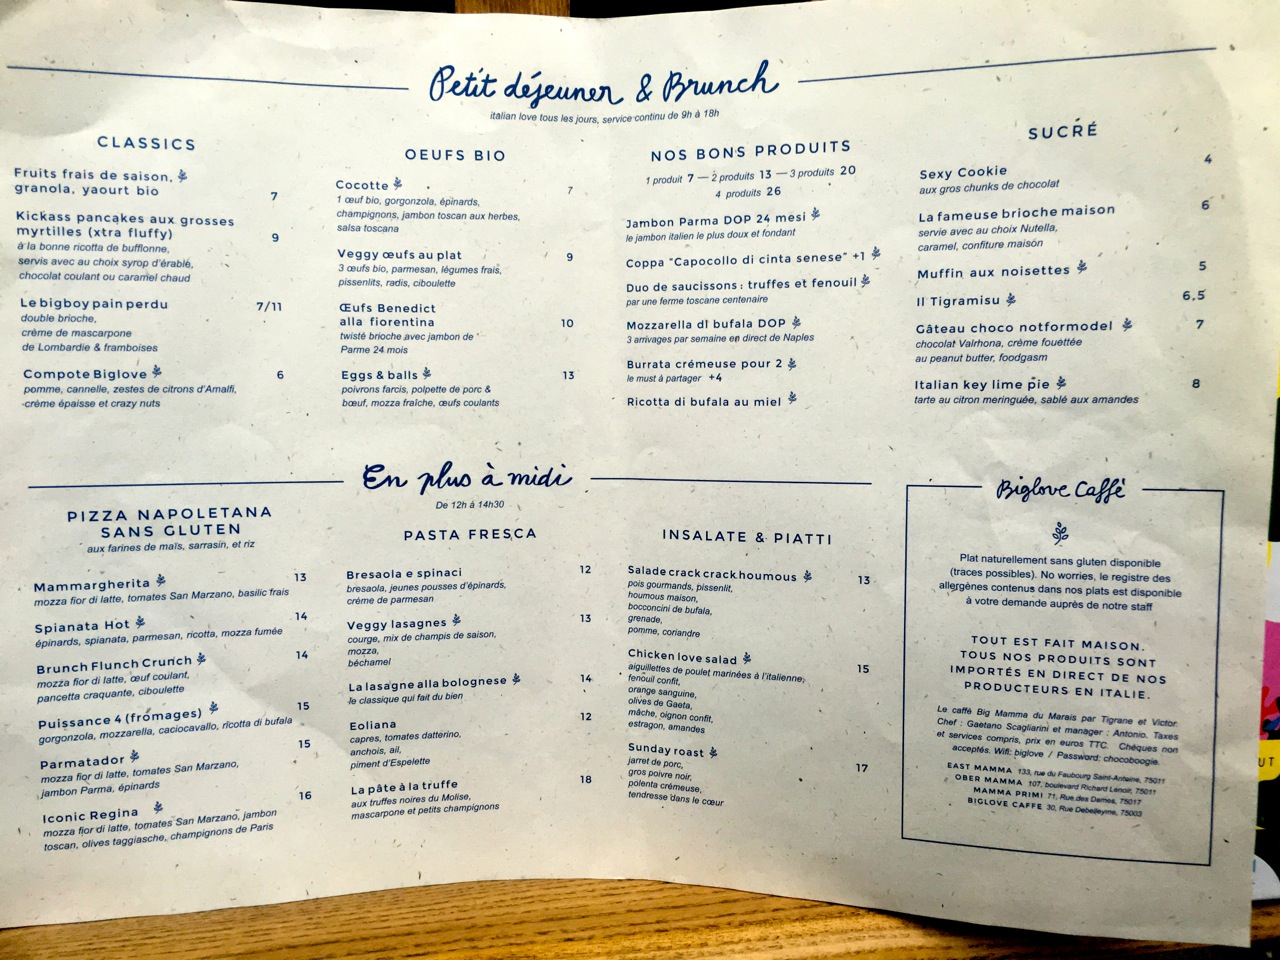 Petit déjeuner & Brunch
italian love tous les jours, service continu de 9h à 18h
CLASSICS
Fruits frais de saison,
granola, yaourt bio 7
Kickass pancakes aux grosses
myrtilles (xtra fluffy) 9
à la bonne ricotta de bufflonne,
servis avec au choix syrop d'érablé,
chocolat coulant ou caramel chaud
Le bigboy pain perdu 7/11
double brioche,
crème de mascarpone
de Lombardie & framboises
Compote Biglove 6
pomme, cannelle, zestes de citrons d'Amalfi,
crème épaisse et crazy nuts
OEUFS BIO
Cocotte 7
1 œuf bio, gorgonzola, épinards,
champignons, jambon toscan aux herbes,
salsa toscana
Veggy œufs au plat 9
3 œufs bio, parmesan, légumes frais,
pissenlits, radis, ciboulette
Œufs Benedict
alla fiorentina 10
twisté brioche avec jambon de
Parme 24 mois
Eggs & balls 13
poivrons farcis, polpette de porc &
bœuf, mozza fraîche, œufs coulants
NOS BONS PRODUITS
1 produit 7 — 2 produits 13 — 3 produits 20
4 produits 26
Jambon Parma DOP 24 mesi
le jambon italien le plus doux et fondant
Coppa "Capocollo di cinta senese" +1
Duo de saucissons : truffes et fenouil
par une ferme toscane centenaire
Mozzarella di bufala DOP
3 arrivages par semaine en direct de Naples
Burrata crémeuse pour 2
le must à partager +4
Ricotta di bufala au miel
SUCRÉ
Sexy Cookie 4
aux gros chunks de chocolat
La fameuse brioche maison 6
servie avec au choix Nutella,
caramel, confiture maison
Muffin aux noisettes 5
Il Tigramisu 6,5
Gâteau choco notformodel 7
chocolat Valrhona, crème fouettée
au peanut butter, foodgasm
Italian key lime pie 8
tarte au citron meringuée, sablé aux amandes
En plus à midi
De 12h à 14h30
PIZZA NAPOLETANA
SANS GLUTEN
aux farines de maïs, sarrasin, et riz
Mammargherita 13
mozza fior di latte, tomates San Marzano, basilic frais
Spianata Hot 14
épinards, spianata, parmesan, ricotta, mozza fumée
Brunch Flunch Crunch 14
mozza fior di latte, œuf coulant,
pancetta craquante, ciboulette
Puissance 4 (fromages) 15
gorgonzola, mozzarella, caciocavallo, ricotta di bufala
Parmatador 15
mozza fior di latte, tomates San Marzano,
jambon Parma, épinards
Iconic Regina 16
mozza fior di latte, tomates San Marzano, jambon
toscan, olives taggiasche, champignons de Paris
PASTA FRESCA
Bresaola e spinaci 12
bresaola, jeunes pousses d'épinards,
crème de parmesan
Veggy lasagnes 13
courge, mix de champis de saison,
mozza,
béchamel
La lasagne alla bolognese 14
le classique qui fait du bien
Eoliana 12
capres, tomates datterino,
anchois, ail,
piment d'Espelette
La pâte à la truffe 18
aux truffes noires du Molise,
mascarpone et petits champignons
INSALATE & PIATTI
Salade crack crack houmous 13
pois gourmands, pissenlit,
houmous maison,
bocconcini de bufala,
grenade,
pomme, coriandre
Chicken love salad 15
aiguillettes de poulet marinées à l'italienne,
fenouil confit,
orange sanguine,
olives de Gaeta,
mâche, oignon confit,
estragon, amandes
Sunday roast 17
jarret de porc,
gros poivre noir,
polenta crémeuse,
tendresse dans le cœur
Biglove Caffè
Plat naturellement sans gluten disponible
(traces possibles). No worries, le registre des
allergènes contenus dans nos plats est disponible
à votre demande auprès de notre staff
TOUT EST FAIT MAISON.
TOUS NOS PRODUITS SONT
IMPORTÉS EN DIRECT DE NOS
PRODUCTEURS EN ITALIE.
Le caffè Big Mamma du Marais par Tigrane et Victor.
Chef : Gaetano Scagliarini et manager : Antonio. Taxes
et services compris, prix en euros TTC. Chèques non
acceptés. Wifi: biglove / Password: chocoboogie.
EAST MAMMA 133, rue du Faubourg Saint-Antoine, 75011
OBER MAMMA 107, boulevard Richard Lenoir, 75011
MAMMA PRIMI 71, Rue des Dames, 75017
BIGLOVE CAFFÈ 30, Rue Debelleyme, 75003
UT